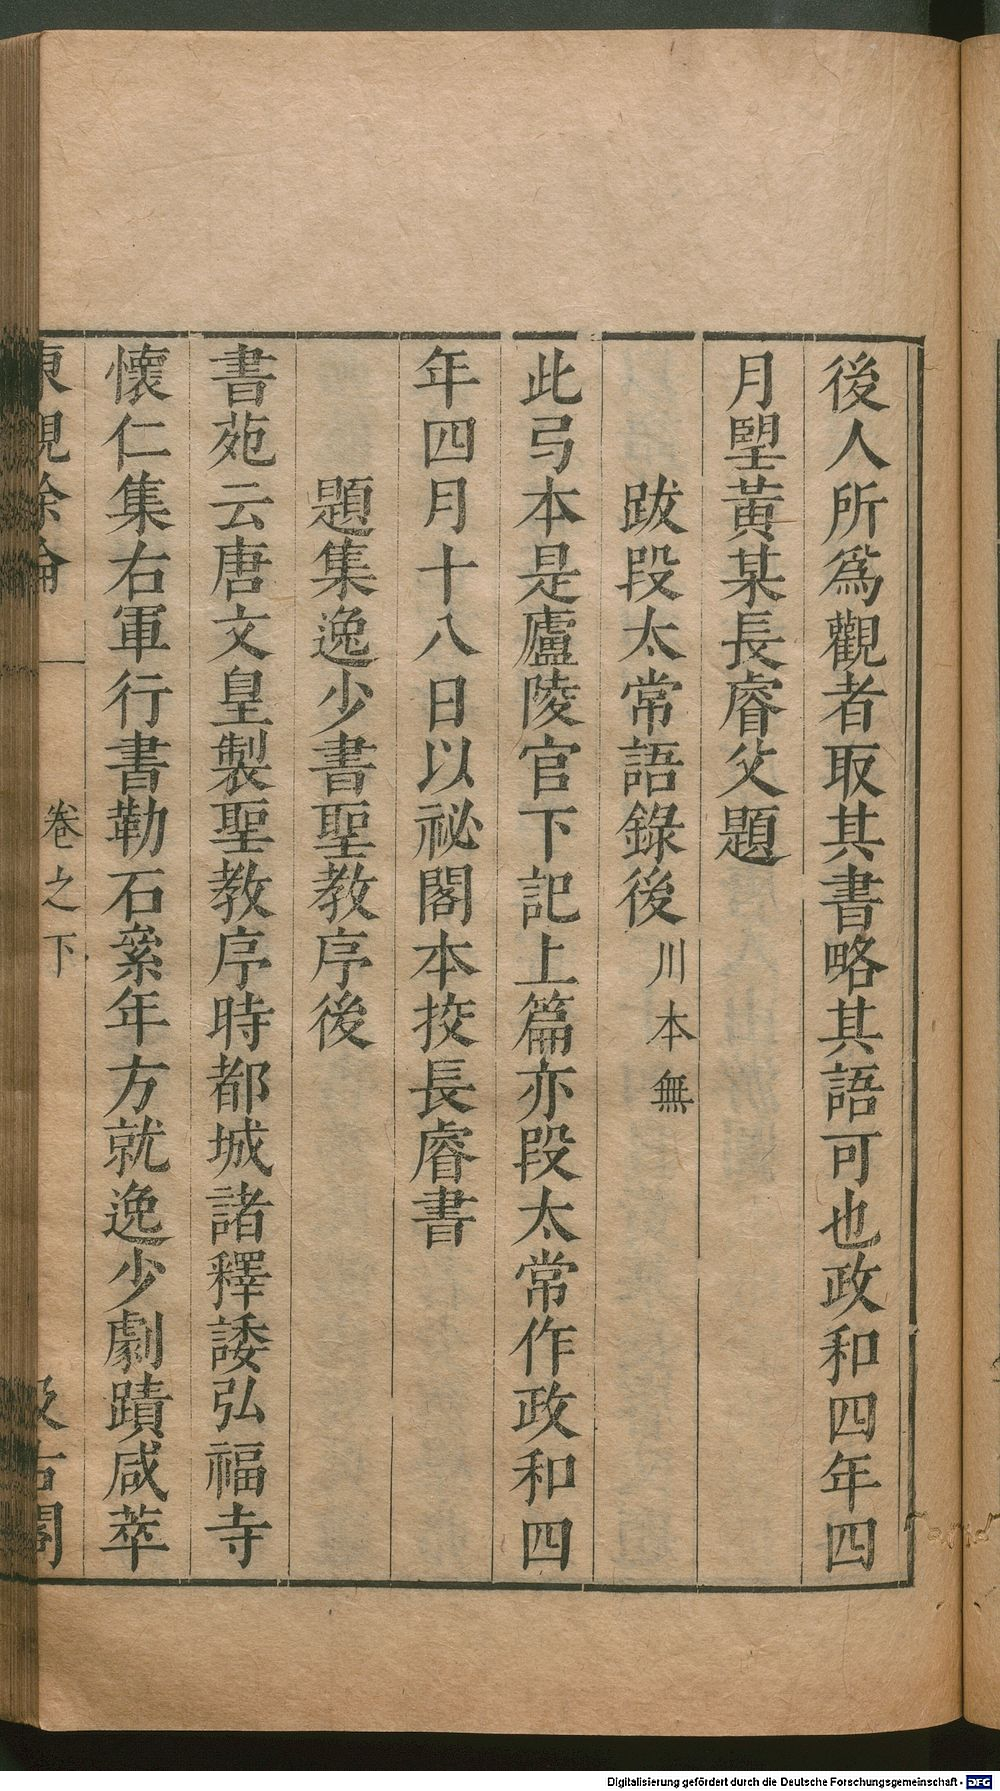 後人所爲觀者取其書略其語可也政和四年四
月朢黃某長睿父題
跋段太常語錄後川本無
此弓本是廬陵官下記上篇亦段太常作政和四
年四月十八日以祕閣本挍長睿書
題集逸少書聖教序後
書苑云唐文皇製聖教序時都城諸釋諉弘福寺
懷仁集右軍行書勒石絫年方就逸少劇蹟咸萃
東觀餘論 卷之下 汲古閣
Digitalisierung gefördert durch die Deutsche Forschungsgemeinschaft - DFG